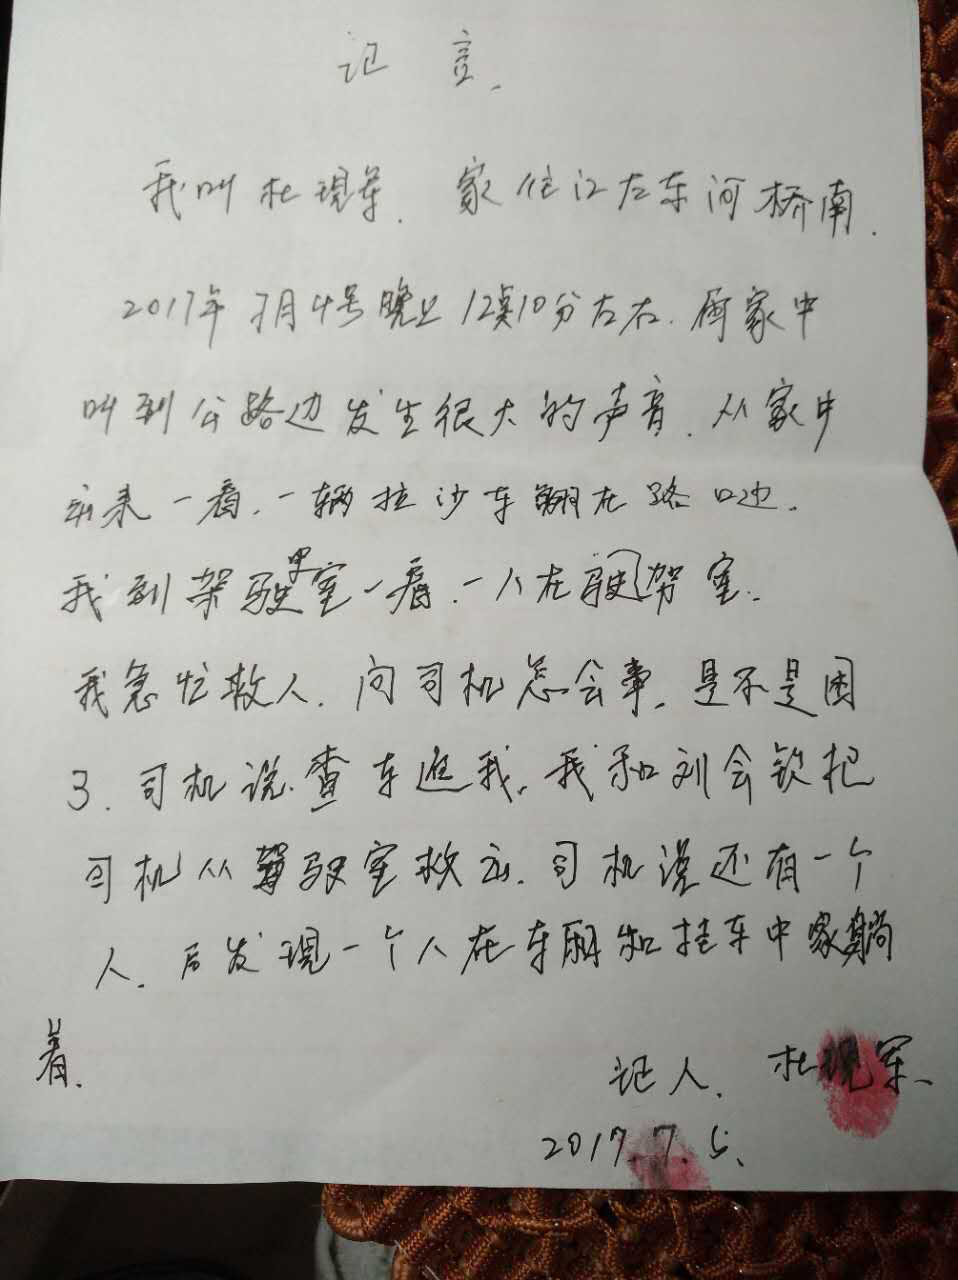 记言.
我叫杜现军.家住江左东河桥南.
2017年7月4号晚上12点10分左右.在家中
叫到公路边发生很大的声音.从家中
出来一看.一辆拉沙车翻在路口边.
我到架驶室一看.一人在驶驾室.
我急忙救人.问司机怎会事.是不是困
了.司机说.查车追我.我和刘会钦把
司机从驾驶室救出.司机说还有一个
人.后发现一个人在车厢和挂车中家躺
着.
记人.杜现军.
2017.7.5.